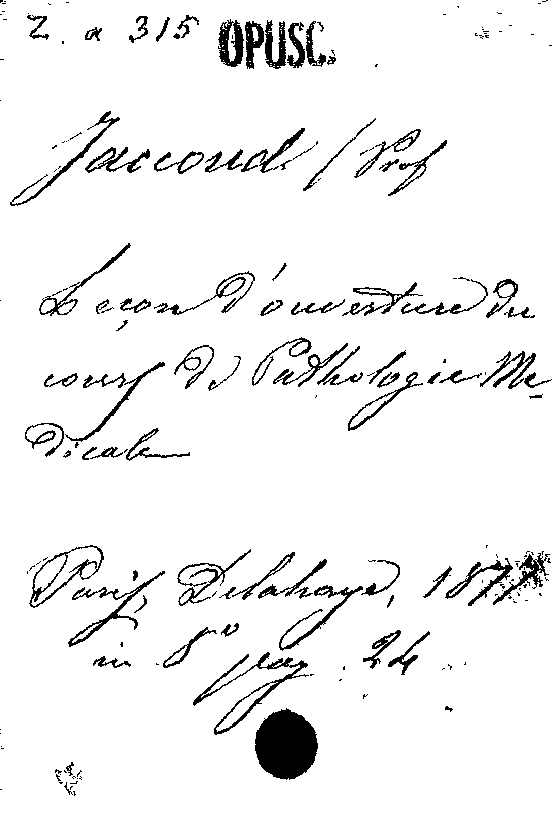 Z. a 315 OPUSC.
Jaccoud / Prof
Leçon d'ouverture du
cours de Pathologie Me-
dicale
Paris, Delahaye, 1877
in 8° pag. 24